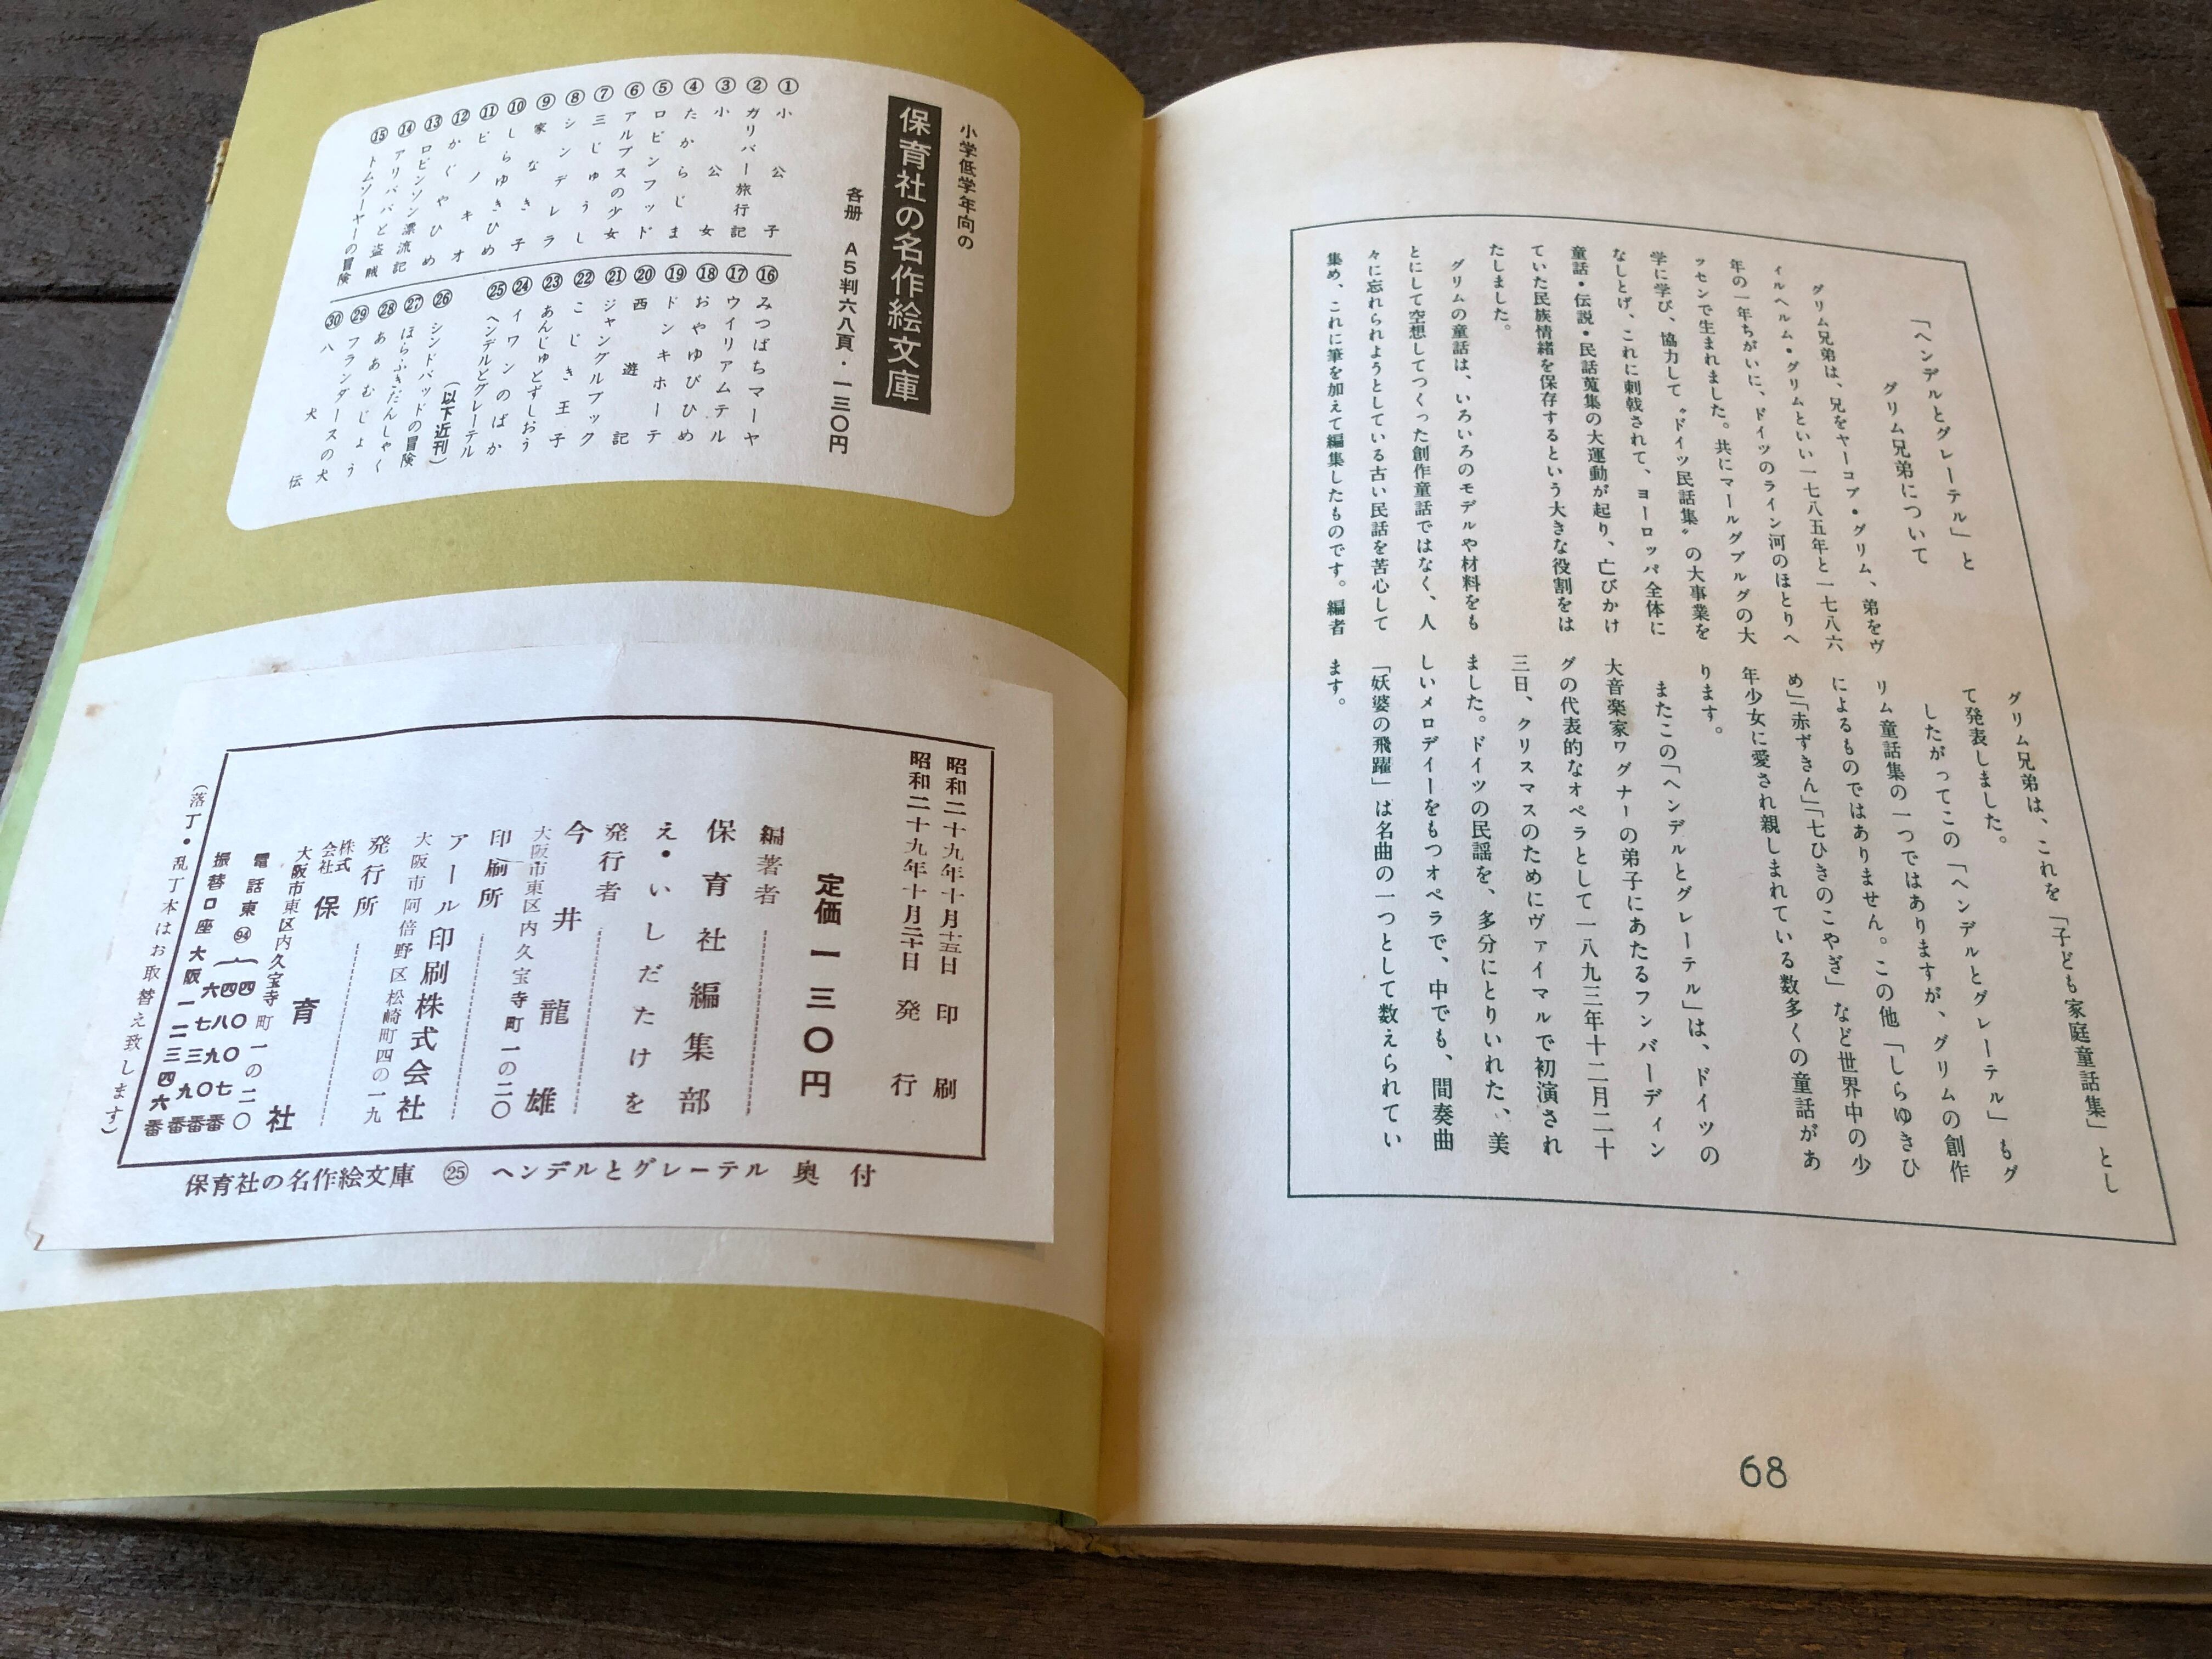 「ヘンデルとグレーテル」と
グリム兄弟について
グリム兄弟は、兄をヤーコブ・グリム、弟をヴ
ィルヘルム・グリムといい一七八五年と一七八六
年の一年ちがいに、ドイツのライン河のほとりヘ
ッセンで生まれました。共にマールグブルグの大
学に学び、協力して〝ドイツ民話集〟の大事業を
なしとげ、これに刺戟されて、ヨーロッパ全体に
童話・伝説・民話蒐集の大運動が起り、亡びかけ
ていた民族情緒を保存するという大きな役割をは
たしました。
グリムの童話は、いろいろのモデルや材料をも
とにして空想してつくった創作童話ではなく、人
々に忘れられようとしている古い民話を苦心して
集め、これに筆を加えて編集したものです。編者
グリム兄弟は、これを「子ども家庭童話集」とし
て発表しました。
したがってこの「ヘンデルとグレーテル」もグ
リム童話集の一つではありますが、グリムの創作
によるものではありません。この他「しらゆきひ
め」「赤ずきん」「七ひきのこやぎ」など世界中の少
年少女に愛され親しまれている数多くの童話があ
ります。
またこの「ヘンデルとグレーテル」は、ドイツの
大音楽家ワグナーの弟子にあたるフンバーディン
グの代表的なオペラとして一八九三年十二月二十
三日、クリスマスのためにヴァイマルで初演され
ました。ドイツの民謡を、多分にとりいれた、美
しいメロデイーをもつオペラで、中でも、間奏曲
「妖婆の飛躍」は名曲の一つとして数えられてい
ます。
68
小学低学年向の
保育社の名作絵文庫
各册 A5判六八頁・一三〇円
①小公子
②ガリバー旅行記
③小公女
④たからじま
⑤ロビンフッド
⑥アルプスの少女
⑦三じゅうし
⑧シンデレラ
⑨家なき子
⑩しらゆきひめ
⑪ピノキオ
⑫かぐやひめ
⑬ロビンソン漂流記
⑭アリババと盗賊
⑮トムソーヤーの冒険
⑯みつばちマーヤ
⑰ウイリアムテル
⑱おやゆびひめ
⑲ドンキホーテ
⑳西遊記
㉑ジャングルブック
㉒こじき王子
㉓あんじゅとずしおう
㉔イワンのばか
㉕ヘンデルとグレーテル
(以下近刊)
㉖シンドバッドの冒険
㉗ほらふきだんしゃく
㉘ああむじょう
㉙フランダースの犬
㉚八犬伝
昭和二十九年十月十五日 印刷
昭和二十九年十月二十日 発行
定価一三〇円
編著者
保育社編集部
え・いしだたけを
発行者
今井龍雄
大阪市東区内久宝寺町一の二〇
印刷所
アール印刷株式会社
大阪市阿倍野区松崎町四の一九
発行所
株式会社 保育社
大阪市東区内久宝寺町一の二〇
電話東(94)
四〇〇七番
四八九〇番
六七三九番
振替口座大阪一二三四六番
(落丁・乱丁本はお取替え致します)
保育社の名作絵文庫 ㉕ ヘンデルとグレーテル 奥付